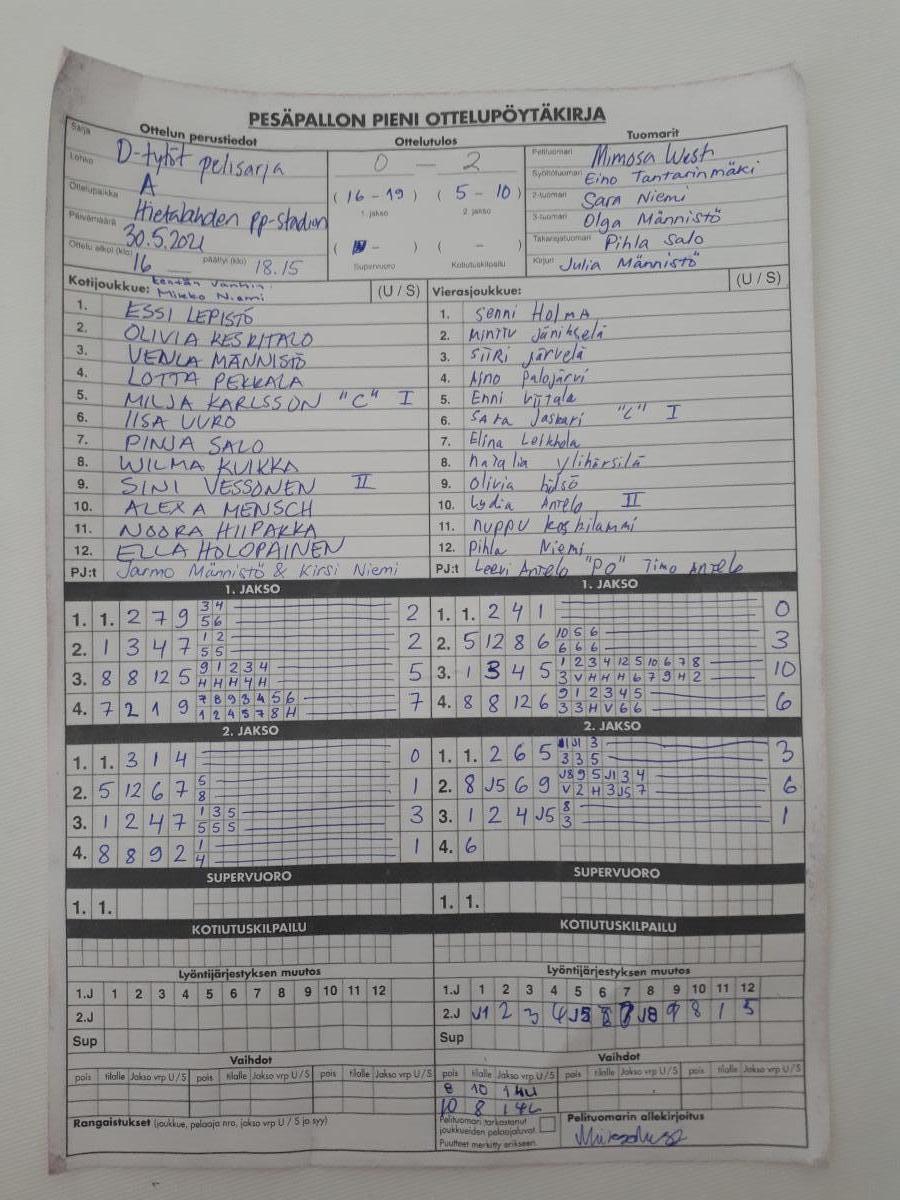 PESÄPALLON PIENI OTTELUPÖYTÄKIRJA
Ottelun perustiedot
Ottelutulos
Tuomarit
Sarja D-tytöt pelisarja
Lohko A
Ottelupaikka Hietalahden pp-stadion
Päivämäärä 30.5.2021
Ottelu alkoi (klo) 16 päättyi (klo) 18.15
0 - 2
(16 - 19) (5 - 10)
1. jakso 2. jakso
( - ) ( - )
Supervuoro Kotiutuskilpailu
Pelituomari Mimosa West
Syöttötuomari Eino Tantarinmäki
2-tuomari Sara Niemi
3-tuomari Olga Männistö
Takarajatuomari Pihla Salo
Kirjuri Julia Männistö
Kotijoukkue: kentän vanhin: Mikko Niemi (U / S)
1. ESSI LEPISTÖ
2. OLIVIA KESKITALO
3. VENLA MÄNNISTÖ
4. LOTTA PEKKALA
5. MILJA KARLSSON "C" I
6. IISA UURO
7. PINJA SALO
8. WILMA KUIKKA
9. SINI VESSONEN II
10. ALEXA MENSCH
11. NOORA HIIPAKKA
12. ELLA HOLOPAINEN
PJ:t Jarmo Männistö & Kirsi Niemi
Vierasjoukkue: (U / S)
1. Senni HolmA
2. Minttu Jänikselä
3. SiiRi Järvelä
4. Aino Palojärvi
5. Enni Viitala
6. SARA Jaskari "C" I
7. Elina
8. Natalia Ylihärsilä
9. Olivia
10. Lydia Antelo II
11. Nuppu Koskilammi
12. Pihla Niemi
PJ:t Leevi Antelo "PO" Timo Antelo
1. JAKSO
1. 1. 2 7 9 3 4 2
5 6
2. 1 3 4 7 1 2 2
5 5
3. 8 8 12 5 9 1 2 3 4 5
H H H 4 H
4. 7 2 1 9 7 8 9 3 4 5 6 7
1 2 4 5 7 8 H
2. JAKSO
1. 1. 3 1 4 0
2. 5 12 6 7 5 1
8
3. 1 2 4 7 1 3 5 3
5 5 5
4. 8 8 9 2 1 1
4
SUPERVUORO
1. 1.
KOTIUTUSKILPAILU
1. JAKSO
1. 1. 2 4 1 0
2. 5 12 8 6 10 5 6 3
6 6 6
3. 1 3 4 5 1 2 3 4 12 5 10 6 7 8 10
3 V H H H 6 7 9 H 2
4. 8 8 12 6 9 1 2 3 4 5 6
3 3 H V 6 6
2. JAKSO
1. 1. 2 6 5 J1 3 3
3 3 5
2. 8 J5 6 9 J8 9 5 J1 3 4 6
V 2 H 3 J5 7
3. 1 2 4 J5 8 1
3
4. 6
SUPERVUORO
1. 1.
KOTIUTUSKILPAILU
Lyöntijärjestyksen muutos
1.J 1 2 3 4 5 6 7 8 9 10 11 12
2.J
Sup
Vaihdot
pois tilalle Jakso vrp U / S pois tilalle Jakso vrp U / S pois tilalle Jakso vrp U / S
Rangaistukset (joukkue, pelaaja nro, jakso vrp U / S ja syy)
Lyöntijärjestyksen muutos
1.J 1 2 3 4 5 6 7 8 9 10 11 12
2.J J1 2 3 4 J5 7 J8 9 8 1 5
Sup
Vaihdot
pois tilalle Jakso vrp U / S pois tilalle Jakso vrp U / S pois tilalle Jakso vrp U / S
8 10 1 4U
10 8
Pelituomari tarkastanut
joukkueiden pelaajaluvat.
Puutteet merkitty erikseen.
Pelituomarin allekirjoitus